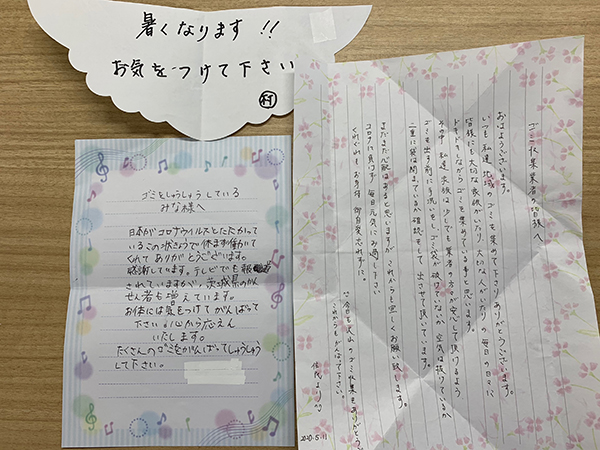 暑くなります!!
お気をつけて下さい
村
ゴミをしゅうしゅうしている
みな様へ
日本がコロナウイルスとたたかって
いるこの状きょうで休まず働いて
くれてありがとうございます。
感謝しています。テレビでも報
されていますが、茨城県のかん
せん者も増えています。
お体には気をつけてがんばって
下さい。心から応えん
いたします。
たくさんのゴミをがんばってしゅうしゅう
して下さい。
ゴミ収集業者の皆様へ
おはようございます。
いつも私達地域のゴミを集めて下さりありがとうございます。
皆様にも大切な家族がいたり、大切な人がいたりの毎日の日々に
ドキドキしながらゴミを集めている事と思います。
その中、私達夫婦は少しでも業者の方々が安心して頂けるよう
ゴミを出す前に手洗いをし、ゴミ袋が破けてないか、空気は抜けているか
二重に袋は閉まっているか確認をして、出させて頂いています。
まだまだ心配はあると思いますが、これからも宜しくお願い致します。
コロナに負けず毎日元気にお過ごし下さい
くれぐれもお身体御自愛忘れずに。
今日も沢山のゴミ収集ありがとう
これからもがんばって下さい。
住民より
2020.5.11